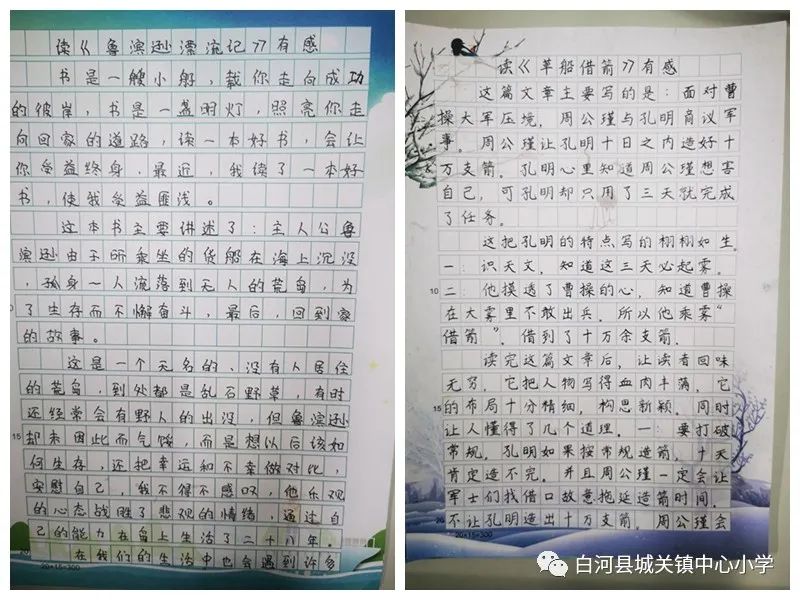 读《鲁滨逊漂流记》有感
书是一艘小船，载你走向成功
的彼岸，书是一盏明灯，照亮你走
向回家的道路，读一本好书，会让
你受益终身，最近，我读了一本好
书，使我受益匪浅。
这本书主要讲述了：主人公鲁
滨逊由于所乘坐的货船在海上沉没
，孤身一人流落到无人的荒岛，为
了生存而不懈奋斗，最后，回到家
的故事。
这是一个无名的、没有人居住
的荒岛，到处都是乱石野草，有时
还经常会有野人的出没，但鲁滨逊
却未因此而气馁，而是想以后该如
何生存，还把幸运和不幸做对比，
安慰自己，我不得不感叹，他乐观
的心态战胜了悲观的情绪，通过自
己的能力在岛上生活了二十八年。
在我们的生活中也会遇到许多
15
20×15=300
读《草船借箭》有感
这篇文章主要写的是：面对曹
操大军压境，周公瑾与孔明商议军
事。周公瑾让孔明十日之内造好十
万支箭。孔明心里知道周公瑾想害
自己，可孔明却只用了三天就完成
了任务。
这把孔明的特点写的栩栩如生。
一：识天文，知道这三天必起雾。
二：他摸透了曹操的心，知道曹操
在大雾里不敢出兵。所以他乘雾“
借箭”，借到了十万余支箭。
读完这篇文章后，让读者回味
无穷，它把人物写得血肉丰满，它
的布局十分精细，构思新颖。同时
让人懂得了几个道理。一：要打破
常规。孔明如果按常规造箭，十天
肯定造不完。并且周公瑾一定会让
军士们找借口故意拖延造箭时间，
不让孔明造出十万支箭，周公瑾会
10
15
20
20×15=300
白河县城关镇中心小学